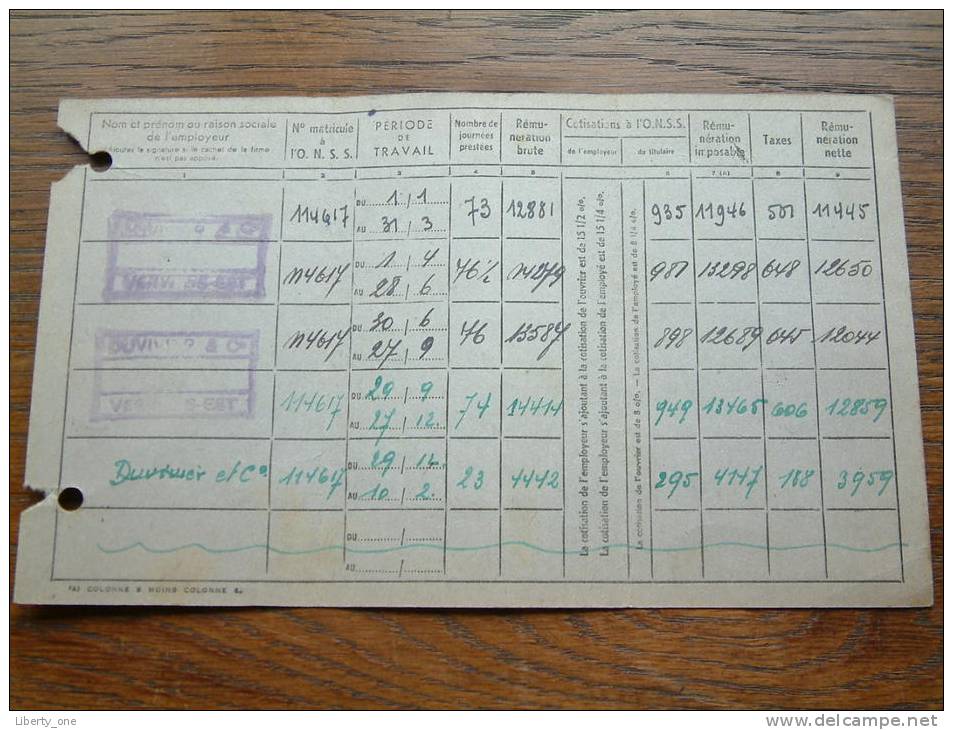 Nom et prénom ou raison sociale
de l'employeur
(Ajoutez la signature si le cachet de la firme
n'est pas apposé)
Nº matricule
à
l'O. N. S. S.
PÉRIODE
DE
TRAVAIL
Nombre de
journées
prestées
Rému-
nération
brute
Cotisations à l'O.N.S.S.
de l'employeur
du titulaire
Rému-
nération
imposable
Taxes
Rému-
nération
nette
1 2 3 4 5 6 7 (A) 8 9
114617 DU 1 / 1 AU 31 / 3 73 12881 935 11946 501 11445
VERV
114617 DU 1 / 4 AU 28 / 6 76½ 14279 981 13298 648 12650
114617 DU 30 / 6 AU 27 / 9 76 13587 898 12689 645 12044
114617 DU 29 / 9 AU 27 / 12. 74 14414 949 13465 606 12859
Duvivier et Co. 114617 DU 29 / 12. AU 10 / 2. 23 4442 295 4147 188 3959
DU / AU /
La cotisation de l'employeur s'ajoutant à la cotisation de l'ouvrier est de 15 1/2 o/o.
La cotisation de l'employeur s'ajoutant à la cotisation de l'employé est de 15 1/4 o/o.
La cotisation de l'ouvrier est de 8 o/o. — La cotisation de l'employé est de 8 1/4 o/o.
(A) COLONNE 5 MOINS COLONNE 6.
Liberty_one
www.delcampe.net